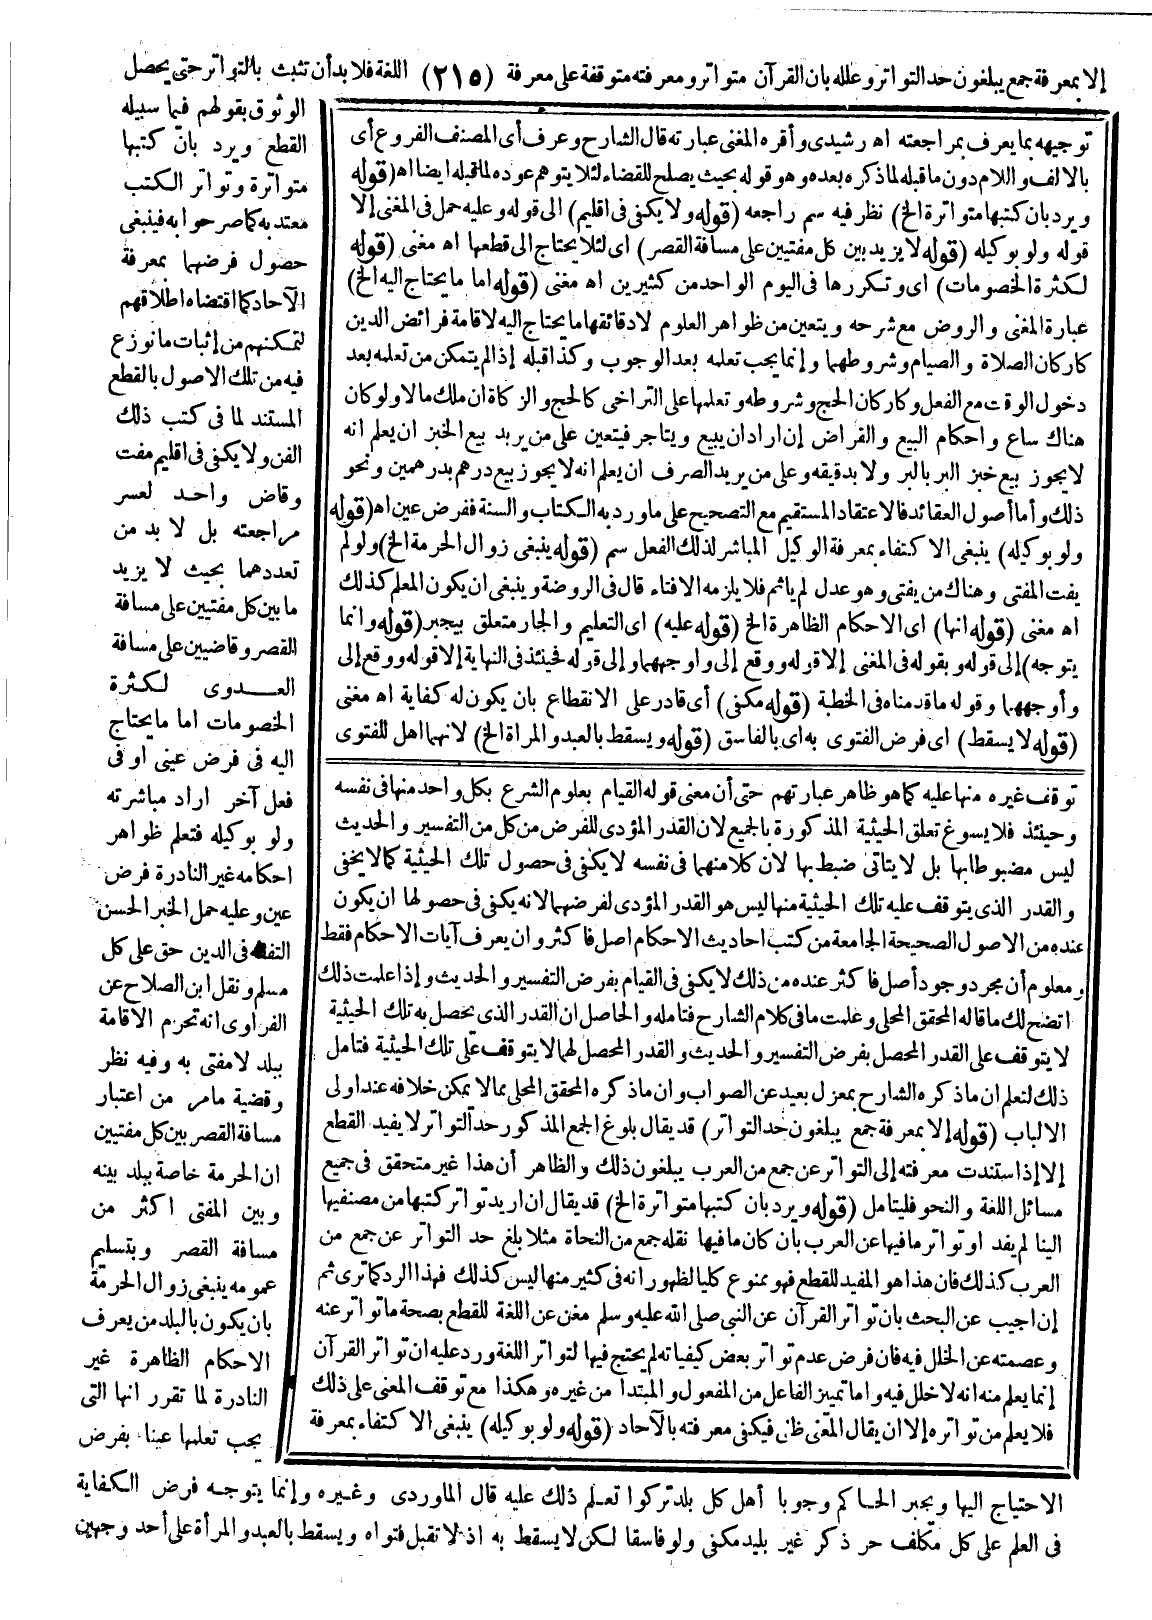 إلا بمعرفة جمع يبلغون حد التواتر وعلله بان القرآن متواتر ومعرفته متوقفة على معرفة (٢١٥) اللغة فلا بد أن تثبت بالتواتر حتى يحصل
الوثوق بقولهم فيما سبيله
القطع ويرد بانّ كتبها
متواترة وتواتر الكتب
معتد به كما صرحوا به فينبغى
حصول فرضهما بمعرفة
الآحاد كما اقتضاه اطلاقهم
لتمكنهم من إثبات ما نوزع
فيه من تلك الاصول بالقطع
المستند لما فى كتب ذلك
الفن ولا يكفى فى اقليم مفت
وقاض واحد لعسر
مراجعته بل لا بد من
تعددهما بحيث لا يزيد
ما بين كل مفتيين على مسافة
القصر وقاضيين على مسافة
العدوى لكثرة
الخصومات اما ما يحتاج
اليه فى فرض عينى او فى
فعل آخر اراد مباشرته
ولو بوكيله فتعلم ظواهر
احكامه غير النادرة فرض
عين وعليه حمل الخبر الحسن
التفقه فى الدين حق على كل
مسلم ونقل ابن الصلاح عن
الفراوى انه تحرم الاقامة
ببلد لا مفتى به وفيه نظر
وقضية ما مر من اعتبار
مسافة القصر بين كل مفتيين
ان الحرمة خاصة ببلد بينه
وبين المفتى اكثر من
مسافة القصر وبتسليم
عمومه ينبغى زوال الحرمة
بان يكون بالبلد من يعرف
الاحكام الظاهرة غير
النادرة لما تقرر انها التى
يجب تعلمها عينا بفرض
توجيهه بما يعرف بمراجعته اه رشيدى وأقره المغنى عبارته قال الشارح وعرف أى المصنف الفروع أى
بالالف واللام دون ما قبله لما ذكره بعده وهو قوله بحيث يصلح للقضاء لئلا يتوهم عوده لما قبله ايضا اه (قوله
ويرد بان كتبها متواترة الخ) نظر فيه سم راجعه (قوله ولا يكفى فى اقليم) الى قوله وعليه حمل فى المغنى إلا
قوله ولو بوكيله (قوله لا يزيد بين كل مفتيين على مسافة القصر) اى لئلا يحتاج الى قطعها اه مغنى (قوله
لكثرة الخصومات) اى وتكررها فى اليوم الواحد من كثيرين اه مغنى (قوله اما ما يحتاج اليه الخ)
عبارة المغنى والروض مع شرحه ويتعين من ظواهر العلوم لا دقائقها ما يحتاج اليه لاقامة فرائض الدين
كاركان الصلاة والصيام وشروطهما وإنما يجب تعلمه بعد الوجوب وكذا قبله إذا لم يتمكن من تعلمه بعد
دخول الوقت مع الفعل وكاركان الحج وشروطه وتعلمها على التراخى كالحج والزكاة ان ملك مالا ولو كان
هناك ساع واحكام البيع والقراض إن اراد ان يبيع ويتاجر فيتعين على من يريد بيع الخبز ان يعلم انه
لا يجوز بيع خبز البر بالبر ولا بدقيقه وعلى من يريد الصرف ان يعلم انه لا يجوز بيع درهم بدرهمين ونحو
ذلك وأما أصول العقائد فالاعتقاد المستقيم مع التصحيح على ما ورد به الكتاب والسنة ففرض عين اه (قوله
ولو بوكيله) ينبغى الاكتفاء بمعرفة الوكيل المباشر لذلك الفعل سم (قوله ينبغى زوال الحرمة الخ) ولو لم
يفت المفتى وهناك من يفتى وهو عدل لم ياثم فلا يلزمه الافتاء قال فى الروضة وينبغى ان يكون المعلم كذلك
اه مغنى (قوله انها) اى الاحكام الظاهرة الخ (قوله عليه) اى التعليم والجار متعلق بيجبر (قوله وانما
يتوجه) إلى قوله وبقوله فى المغنى إلا قوله ووقع إلى واوجههما وإلى قوله فحينئذ فى النهاية إلا قوله ووقع إلى
وأوجههما وقوله ما قدمناه فى الخطبة (قوله مكفى) أى قادر على الانقطاع بان يكون له كفاية اه مغنى
(قوله لا يسقط) اى فرض الفتوى به اى بالفاسق (قوله ويسقط بالعبد والمراة الخ) لانهما اهل للفتوى
توقف غيره منها عليه كما هو ظاهر عبارتهم حتى أن معنى قوله القيام بعلوم الشرع بكل واحد منها فى نفسه
وحينئذ فلا يسوغ تعلق الحيثية المذكورة بالجميع لان القدر المؤدى للفرض من كل من التفسير والحديث
ليس مضبوطا بها بل لا يتاتى ضبط بها لان كلا منهما فى نفسه لا يكفى فى حصول تلك الحيثية كما لا يخفى
والقدر الذى يتوقف عليه تلك الحيثية منها ليس هو القدر المؤدى لفرضهما لانه يكفى فى حصولها ان يكون
عنده من الاصول الصحيحة الجامعة من كتب احاديث الاحكام اصل فاكثر وان يعرف آيات الاحكام فقط
ومعلوم أن مجرد وجود أصل فاكثر عنده من ذلك لا يكفى فى القيام بفرض التفسير والحديث وإذا علمت ذلك
اتضح لك ما قاله المحقق المحلى وعلمت ما فى كلام الشارح فتامله والحاصل ان القدر الذى يحصل به تلك الحيثية
لا يتوقف على القدر المحصل بفرض التفسير والحديث والقدر المحصل لهما لا يتوقف على تلك الحيثية فتامل
ذلك لتعلم ان ما ذكره الشارح بمعزل بعيد عن الصواب وان ما ذكره المحقق المحلى بما لا يمكن خلافه عند اولى
الالباب (قوله إلا بمعرفة جمع يبلغون حد التواتر) قد يقال بلوغ الجمع المذكور حد التواتر لا يفيد القطع
إلا إذا استندت معرفته إلى التواتر عن جمع من العرب يبلغون ذلك والظاهر أن هذا غير متحقق فى جميع
مسائل اللغة والنحو فليتامل (قوله ويرد بان كتبها متواترة الخ) قد يقال ان اريد تواتر كتبها من مصنفيها
الينا لم يفد او تواتر ما فيها عن العرب بأن كان ما فيها نقله جمع من النحاة مثلا بلغ حد التواتر عن جمع من
العرب كذلك فان هذا هو المفيد للقطع فهو ممنوع كليا لظهور انه فى كثير منها ليس كذلك فهذا الرد كما ترى ثم
إن اجيب عن البحث بان تواتر القرآن عن النبى صلى الله عليه وسلم مغن عن اللغة للقطع بصحة ما تواتر عنه
وعصمته عن الخلل فيه فان فرض عدم تواتر بعض كيفياته لم يحتج فيها لتواتر اللغة ورد عليه ان تواتر القرآن
إنما يعلم منه انه لا خلل فيه واما تمييز الفاعل من المفعول والمبتدا من غيره وهكذا مع توقف المعنى على ذلك
فلا يعلم من تواتره إلا ان يقال المعنى ظنى فيكفى معرفته بالآحاد (قوله ولو بوكيله) ينبغى الاكتفاء بمعرفة
الاحتياج اليها ويجبر الحاكم وجوبا أهل كل بلد تركوا تعلم ذلك عليه قال الماوردى وغيره وإنما يتوجه فرض الكفاية
فى العلم على كل مكلف حر ذكر غير بليد مكفى ولو فاسقا لكن لا يسقط به اذ لا تقبل فتواه ويسقط بالعبد والمرأة على أحد وجهين